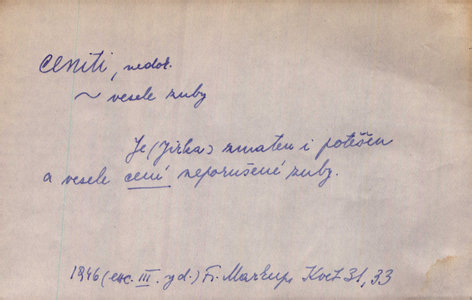 ceniti, nedok.
~ vesele zuby
Je (Jirka) zmaten i potěšen
a vesele cení neporušené zuby.
1946 (exc. III. vyd.) Fr. Kvet 31, 33